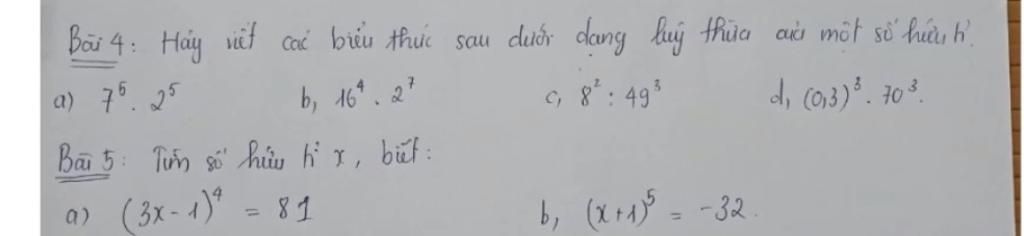 Bài 4: Hãy viết các biểu thức sau dưới dạng luỹ thừa của một số hữu tỉ.
a) 7⁵ . 2⁵ b, 16⁴ . 2⁷ c, 8² : 49³ d, (0,3)³ . 70³.
Bài 5: Tìm số hữu tỉ x, biết:
a) (3x-1)⁴ = 81 b, (x+1)⁵ = -32.